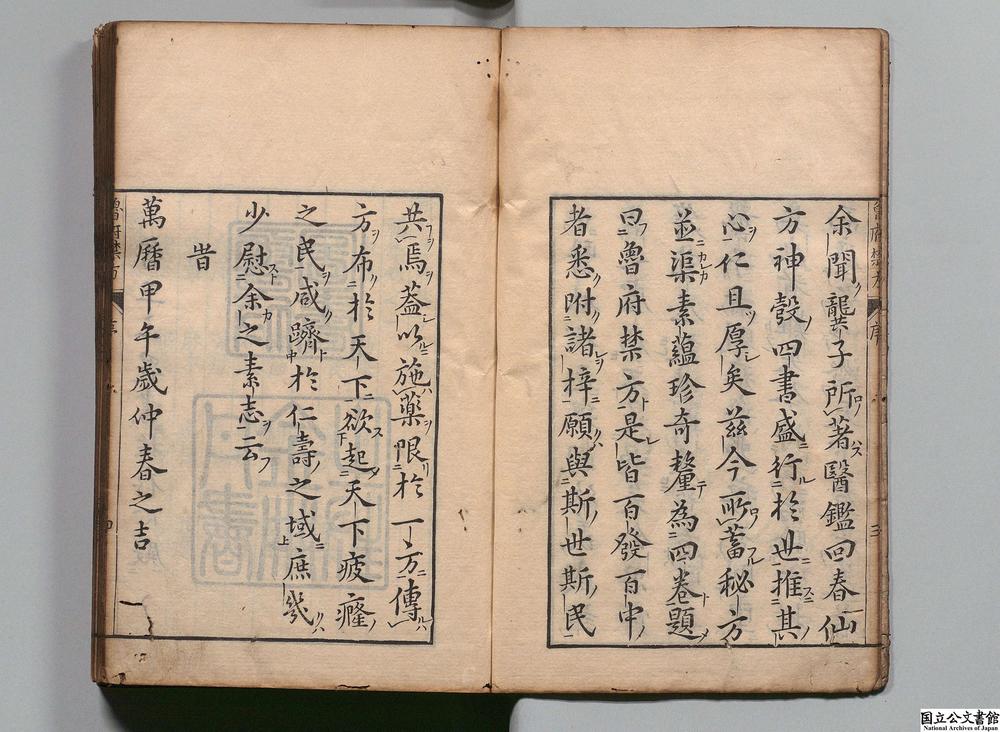 余聞龔子所著醫鑑回春仙
方神彀四書盛行於世推其
心仁且厚矣茲今所蓄秘方
並渠素蘊珍奇釐為四卷題
曰魯府禁方是皆百發百中
者悉附諸梓願與斯世斯民
共焉蓋以施藥限於一方傳
方布於天下欲起天下疲癃
之民咸躋於仁壽之域庶幾
少慰余之素志云
旹
萬曆甲午歲仲春之吉
魯府禁方
序
三
国立公文書館
National Archives of Japan